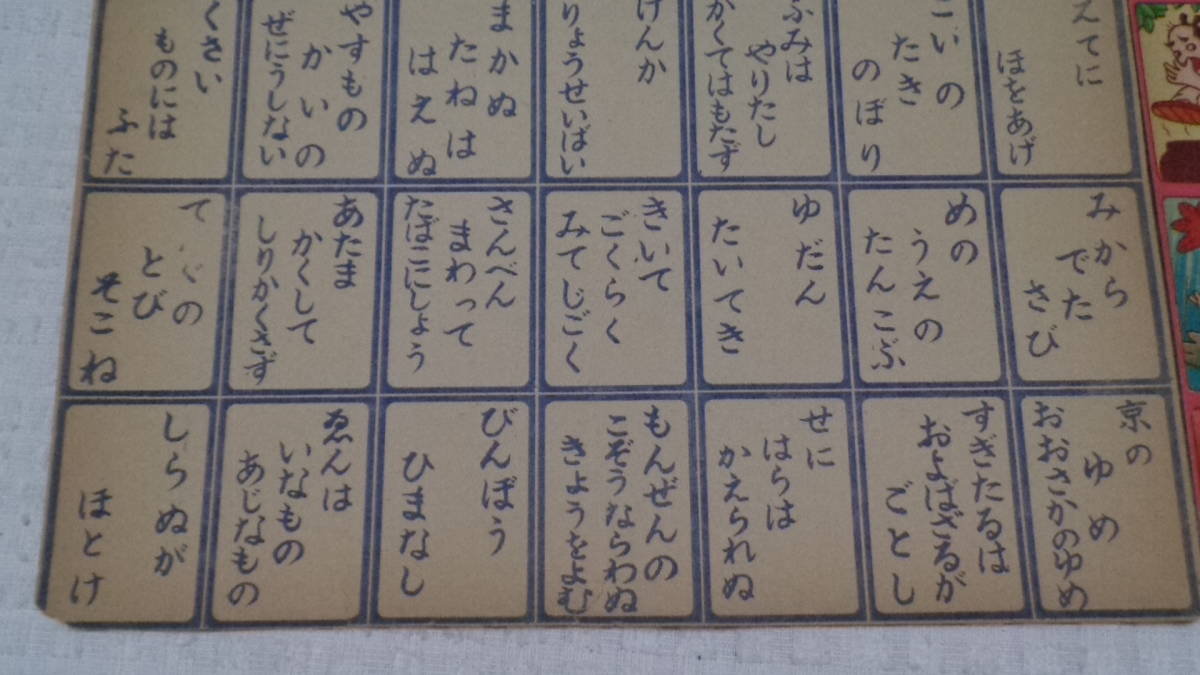 えてに
ほをあげ
こいの
たき
のぼり
ふみは
やりたし
かくてはもたず
けんか
りょうせいばい
まかぬ
たねは
はえぬ
やすもの
かいの
ぜにうしない
くさい
ものには
ふた
みから
でた
さび
めの
うえの
たんこぶ
ゆだん
たいてき
きいて
ごくらく
みてじごく
さんべん
まわって
たばこにしょう
あたま
かくして
しりかくさず
てゞの
とび
そこね
京の
ゆめ
おおさかのゆめ
すぎたるは
およばざるが
ごとし
せに
はらは
かえられぬ
もんぜんの
こぞうならわぬ
きょうをよむ
びんぼう
ひまなし
ゑんは
いなもの
あじなもの
しらぬが
ほとけ